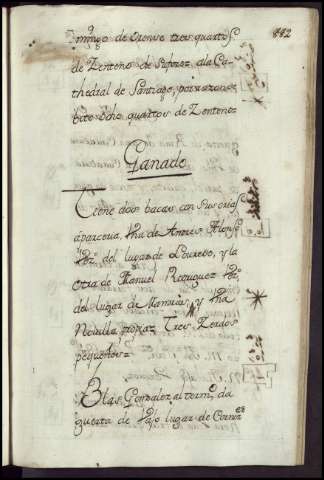 882
Domingo de Orense tres quartos
de Zenteno de a la Ca-
thedral de Santiago, por razon
ocho quartos de Zenteno=
Ganado
Tiene dos bacas con sus crias
aparceria, Una de Andres Alonso
Vº del lugar de Loureso, y la
otra de Manuel Rodriguez Vº
del lugar de y Una
Nobilla propia= Tres Zerdos
pequeños=
Blas Gonzalez al termº da
guerta de lugar de